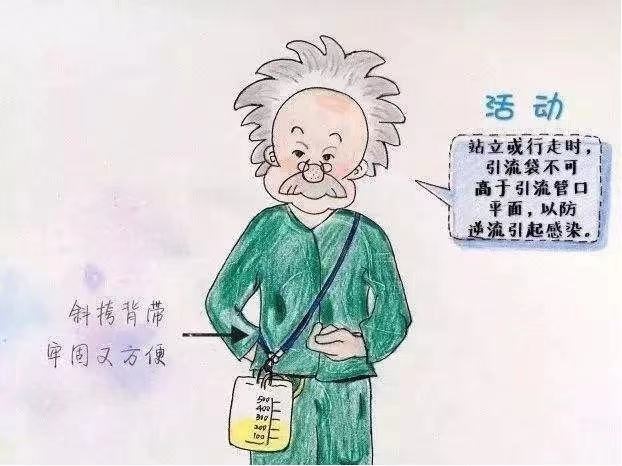 活动
站立或行走时，
引流袋不可
高于引流管口
平面，以防
逆流引起感染。
斜挎背带
牢固又方便
500
400
300
200
100